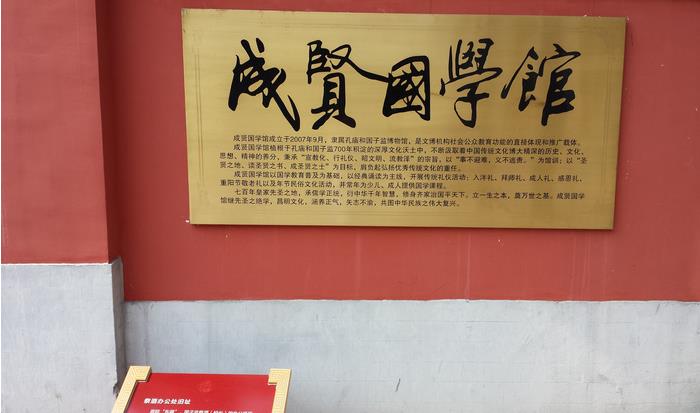 成賢國學館
成贤国学馆成立于2007年9月，隶属孔庙和国子监博物馆，是文博机构社会公众教育功能的直接体现和推广载体。
成贤国学馆植根于孔庙和国子监700年积淀的深厚文化沃土中，不断汲取着中国传统文化博大精深的历史、文化、
思想、精神的养分，秉承“宣教化、行礼仪、昭文明、流教泽”的宗旨，以“事不避难、义不逃责。”为馆训；以“圣
贤之地、读圣贤之书、成圣贤之士”为目标，肩负起弘扬优秀传统文化的重任。
成贤国学馆以国学教育普及为基础，以经典诵读为主线，开展传统礼仪活动：入泮礼、拜师礼、成人礼、感恩礼、
重阳节敬老礼以及年节民俗文化活动，并常年为少儿、成人提供国学课程。
七百年皇家先圣之地，承儒学正统，衍中华千年智慧，修身齐家治国平天下。立一生之本，奠万世之基。成贤国学
馆继先圣之绝学，昌明文化，涵养正气，矢志不渝，共图中华民族之伟大复兴。
祭酒办公处旧址